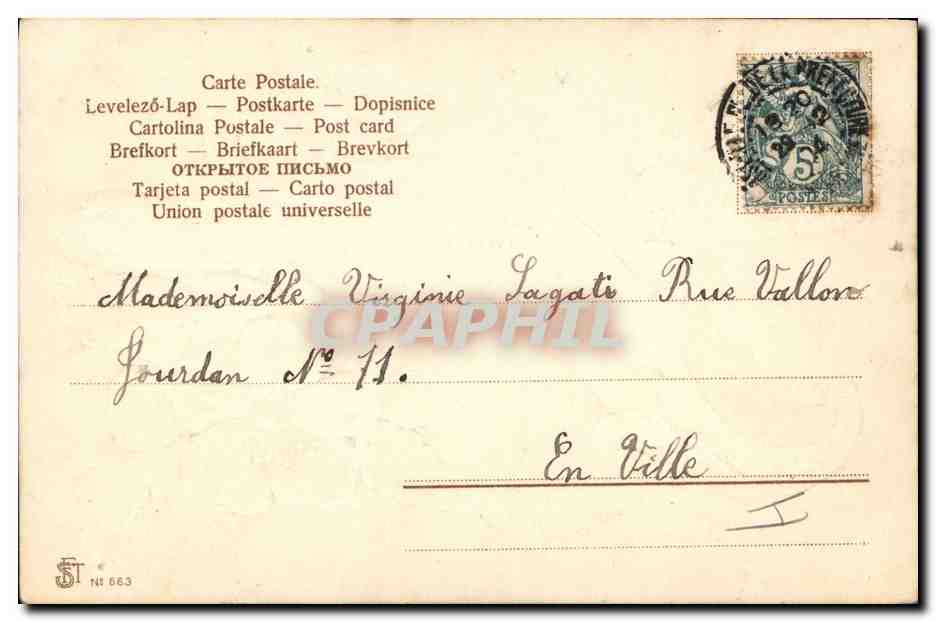 Carte Postale.
Levelező-Lap — Postkarte — Dopisnice
Cartolina Postale — Post card
Brefkort — Briefkaart — Brevkort
ОТКРЫТОЕ ПИСЬМО
Tarjeta postal — Carto postal
Union postale universelle
DE LA PREFECTURE
5
POSTES
Mademoiselle Virginie Sagati Rue Vallon
CPAPHIL
Jourdan Nº 71.
En Ville
Nº 663